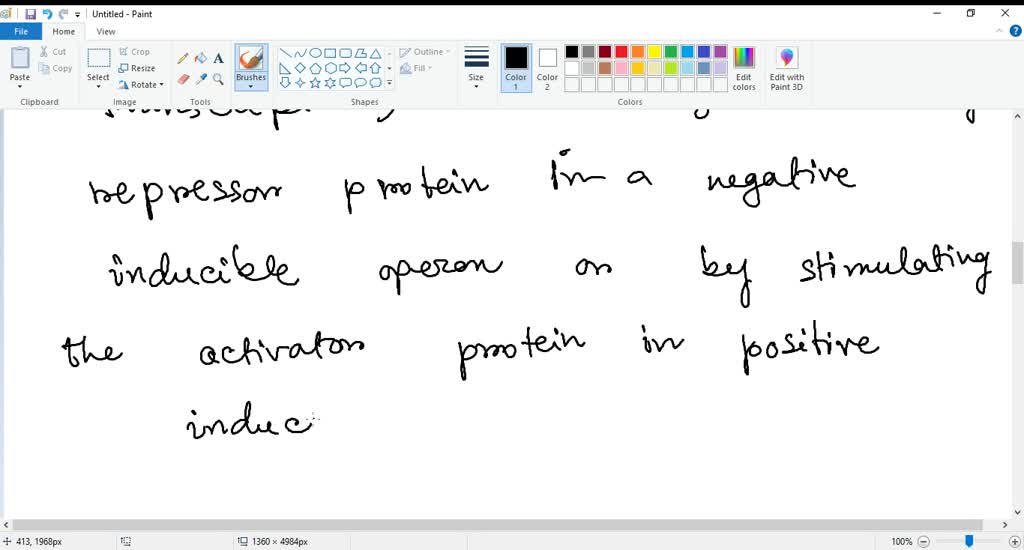 Untitled - Paint
File Home View
Paste
Cut
Copy
Clipboard
Select
Crop
Resize
Rotate
Image
A
Tools
Brushes
Shapes
Outline
Fill
Size
Color 1
Color 2
Colors
Edit colors
Edit with Paint 3D
repressor protein in a negative
inducible operon or by stimulating
the activator protein in positive
induc
413, 1968px
1360 × 4984px
100%